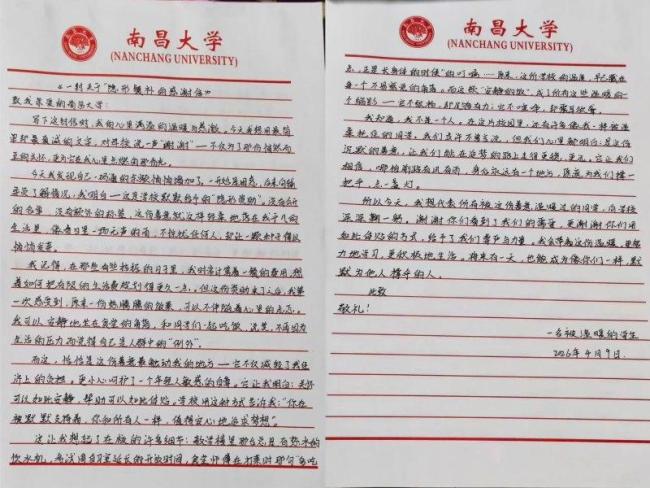 南昌大学
(NANCHANG UNIVERSITY)
《一封关于“隐形餐补的感谢信》
默我亲爱的南昌大学：
写下这封信时，我的心里满满的温暖与感激。今天我想用最简
单却最真诚的文字，对学校说一声“谢谢”——不仅为了那份悄然而
至的关怀，更为它在我心里点燃的那份光。
今天我发现自己一卡通的余额悄悄增加了。一开始是困惑，后来向辅
导员了解情况，我明白——这是学校默默给予的“隐形资助”。没有公开
的名单，没有额外的标签，这份善意就这样轻柔地落在我平凡的
生活里，像春日里一场无声的雨，不惊扰任何人，却让一颗种子得以
悄悄发芽。
我记得，在那些有些拮据的日子里，我时常计算着一餐的费用，想
着如何把有限的生活费规划得更久一点。但这份资助来了之后，我第
一次感受到，原来一份热腾腾的饭菜，可以不伴随着心里的忐忑。
我可以安静地坐在食堂的角落，和同学们一起吃饭、说笑，不再因为
生活的压力而觉得自己是人群中的“例外”。
而这，恰恰是这份善意最触动我的地方——它不仅减轻了我经
济上的负担，更小心呵护了一个年轻人敏感的自尊。它让我明白：关怀
可以如此安静，帮助可以如此体贴。学校用这种方式告诉我：“你在
被默默支持着，你和所有人一样，值得安心地追求梦想”。
这让我想起了在校的许多细节：教学楼里那台总是有热水的
饮水机，考试周自习室延长的开放时间，食堂师傅在打菜时那句“多吃
南昌大学
(NANCHANG UNIVERSITY)
点，正是长身体的时候”的叮嘱……原来，这所学校的温度，早已藏在
每一个不易察觉的角落。而这份“安静的饭”，成了所有这些温暖的一
个缩影——它不张扬，却足够有力；它不喧哗，却震耳欲聋。
我知道，我不是一个人。在这片校园里，还有许多像我一样被温
柔托住的同学。我们或许不善言说，但我们心里都明白：是这份
沉默的善意，让我们能在追梦的路上走得更稳、更远。它让我们
相信，哪怕前路有风有雨，身后永远有一个地方，愿意为我们撑一
把伞，点一盏灯。
所以今天，我想代表所有被这份善意温暖过的同学，向学校
深深鞠一躬。谢谢你们看到了我们的需要，更谢谢你们用
如此体贴的方式，给予了我们尊严与力量。我会带着这份温暖，更努
力地学习，更积极地生活。将来有一天，也能成为像你们一样，默
默为他人撑伞的人。
此致
敬礼！
一名被温暖的学生
2026年4月9日.